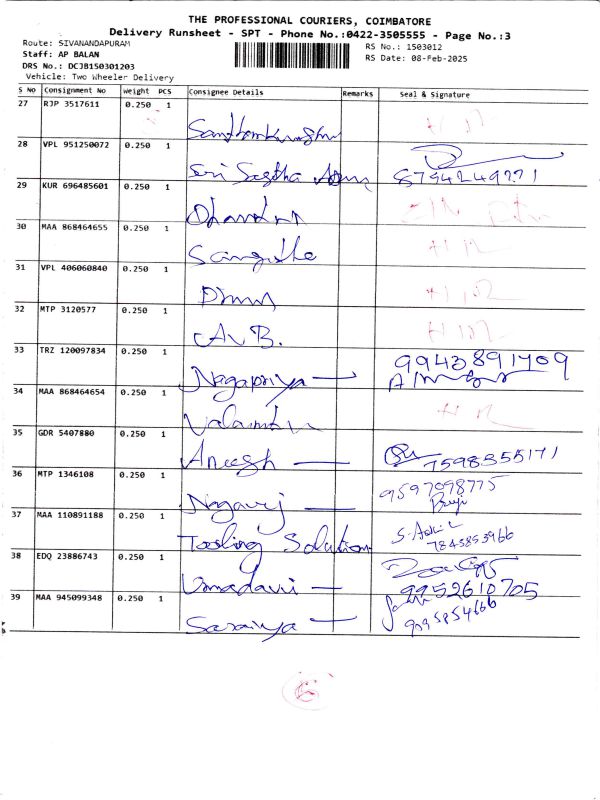 THE PROFESSIONAL COURIERS, COIMBATORE
Delivery Runsheet - SPT - Phone No.:0422-3505555 - Page No.:3
Route: SIVANANDAPURAM
RS No.: 1503012
Staff: AP BALAN
RS Date: 08-Feb-2025
DRS No.: DCJB150301203
Vehicle: Two Wheeler Delivery
S No Consignment No Weight PCS Consignee Details Remarks Seal & Signature
27 RJP 3517611 0.250 1
28 VPL 951250072 0.250 1
Sri Sastha 8794249771
29 KUR 696485601 0.250 1
30 MAA 868464655 0.250 1
Sangitha
31 VPL 406060840 0.250 1
32 MTP 3120577 0.250 1
A.V.B.
33 TRZ 120097834 0.250 1 9943891409
Nagapriya
34 MAA 868464654 0.250 1
35 GDR 5407880 0.250 1
Aneesh 7598355171
36 MTP 1346108 0.250 1 9597098775
Nagaraj
37 MAA 110891188 0.250 1
Tooling Solution 7845853966
38 EDQ 23886743 0.250 1
Umadavi 9952610705
39 MAA 945099348 0.250 1
Saranya 9095854666